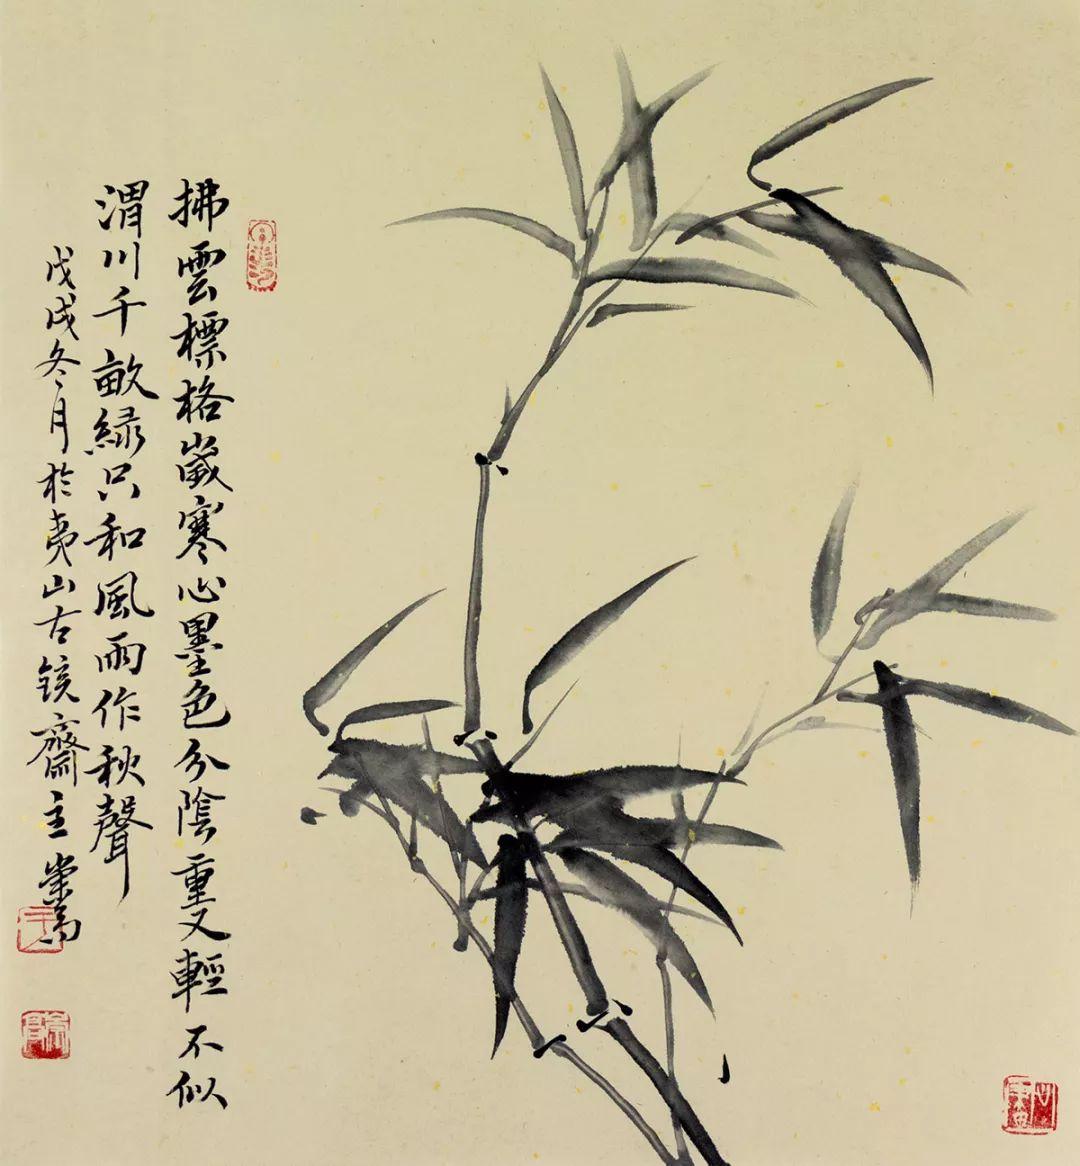 拂雲標格歲寒心墨色分陰重又輕不似
渭川千畝綠只和風雨作秋聲
戊戌冬月於夷山古鏡齋主崇高